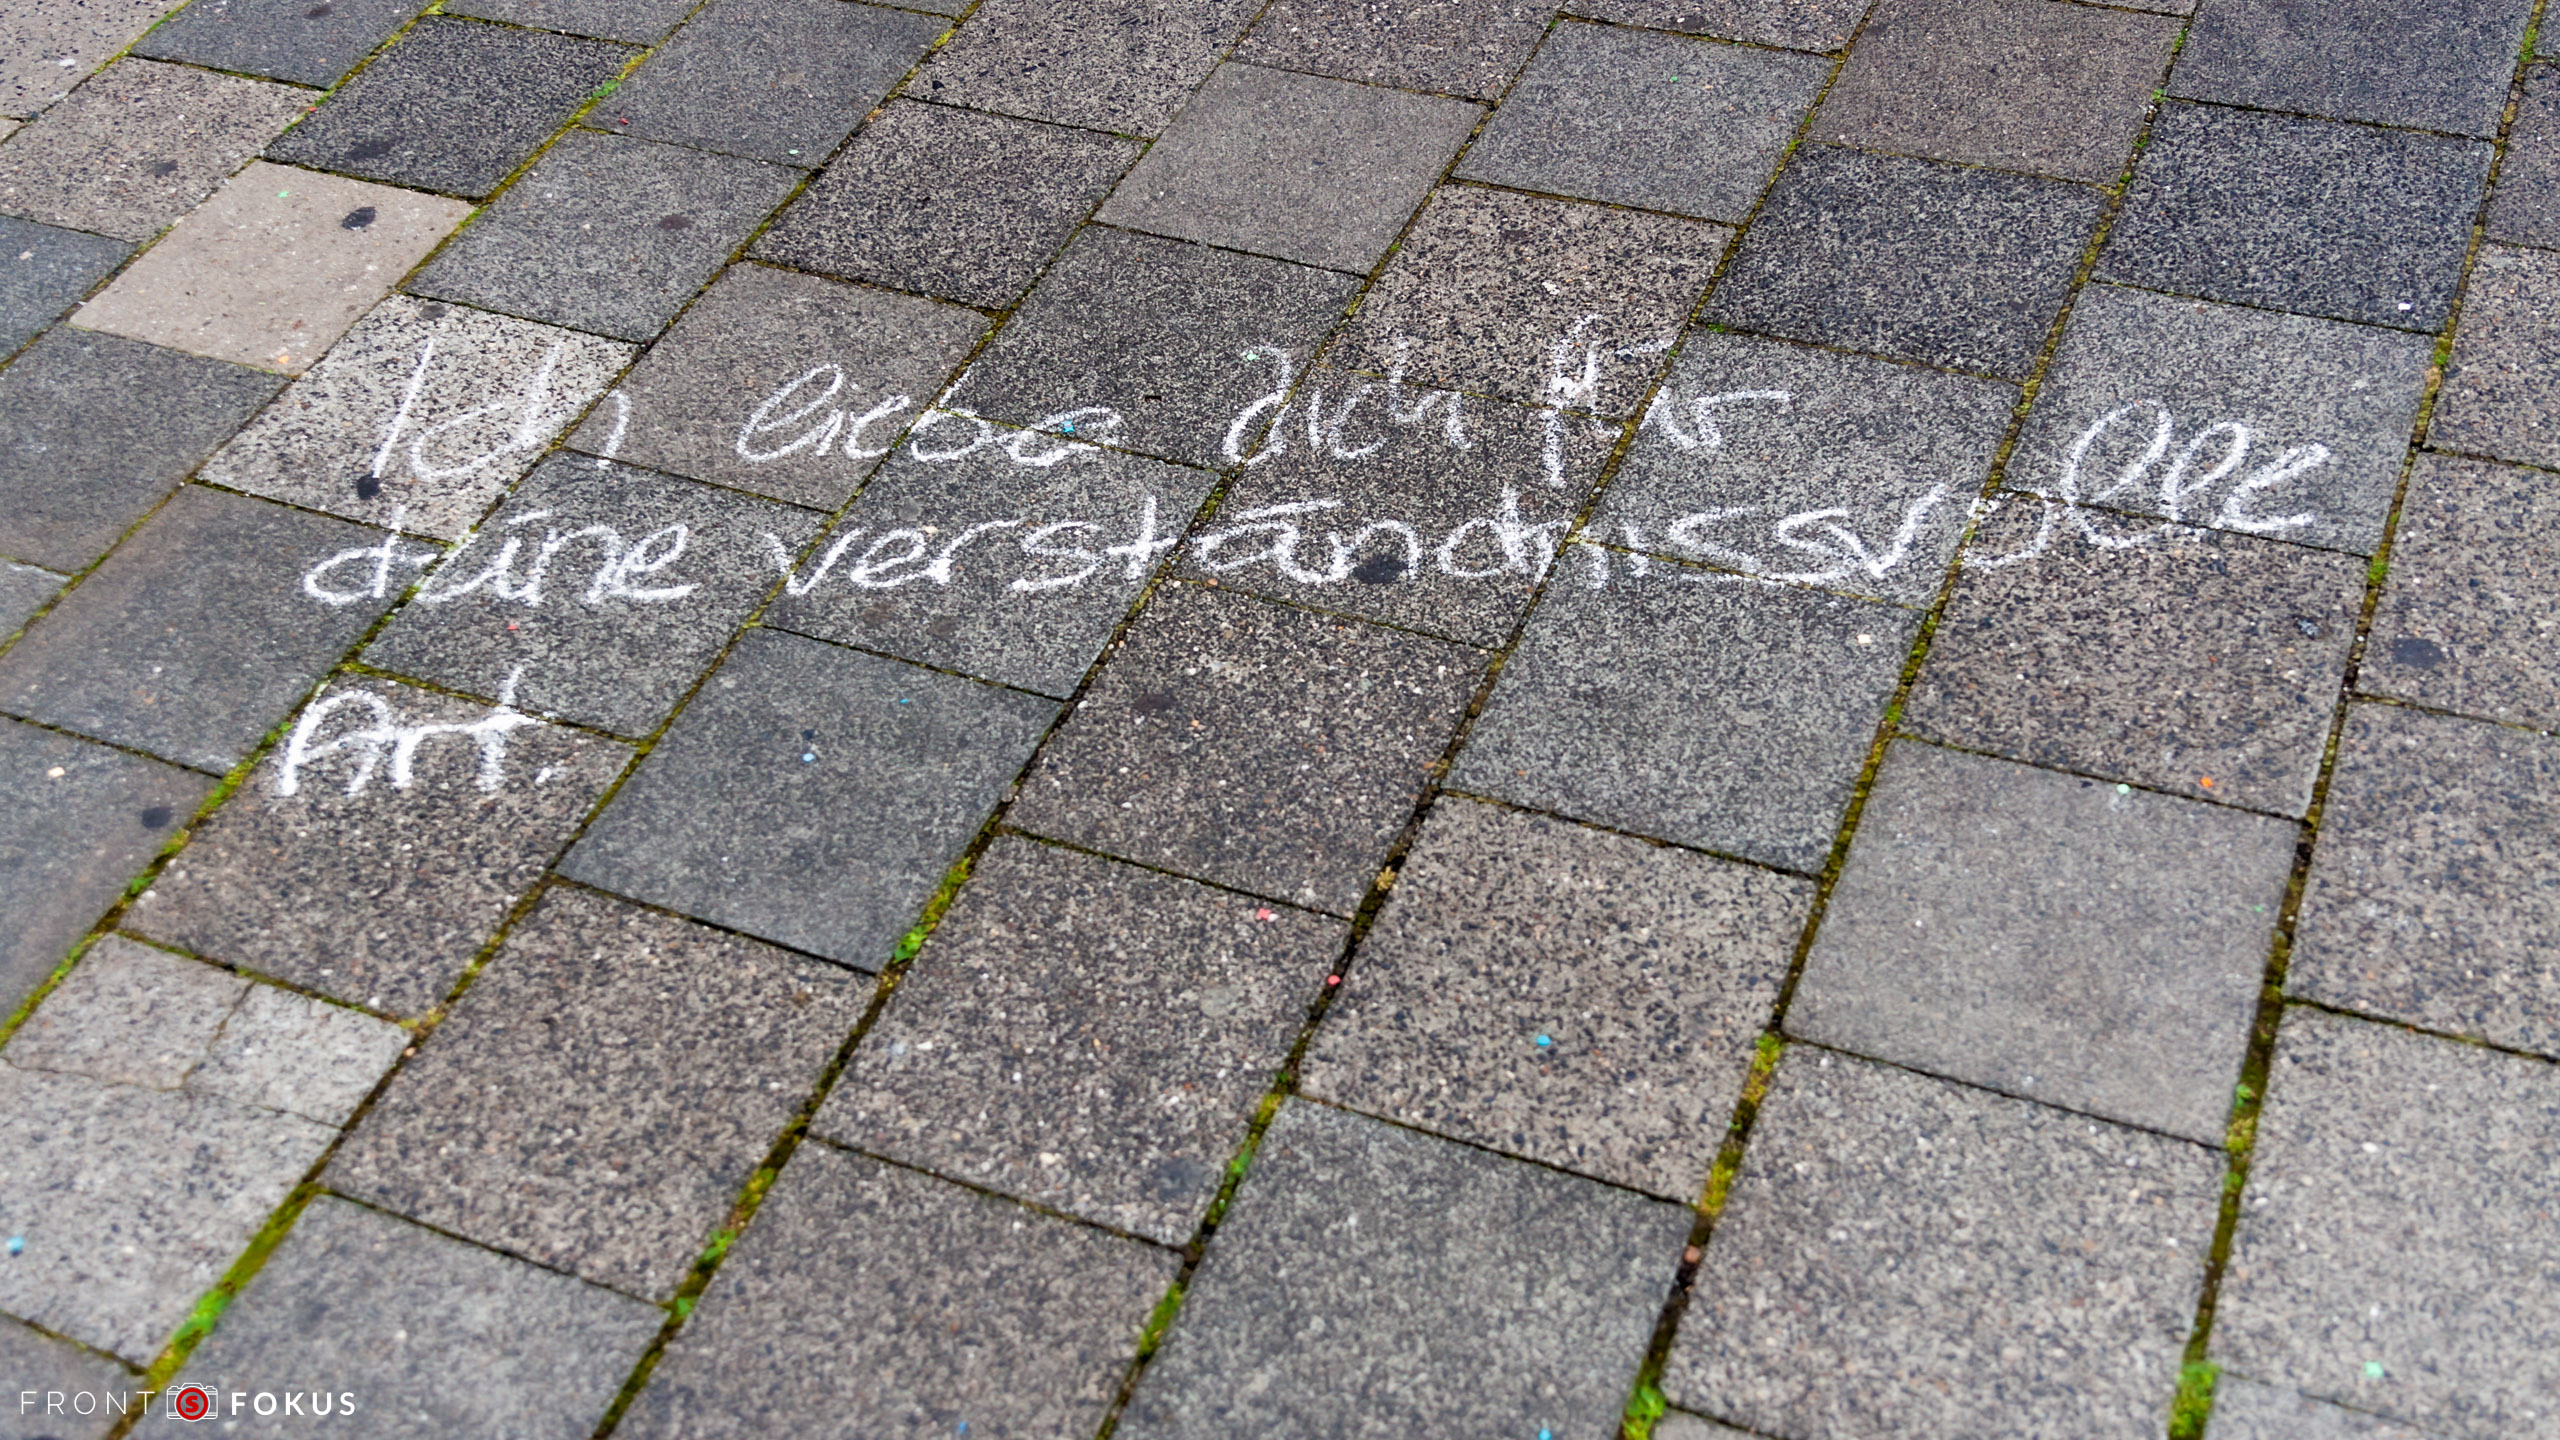 Ich liebe dich für
deine verständnissvolle
Art.
FRONT FOKUS